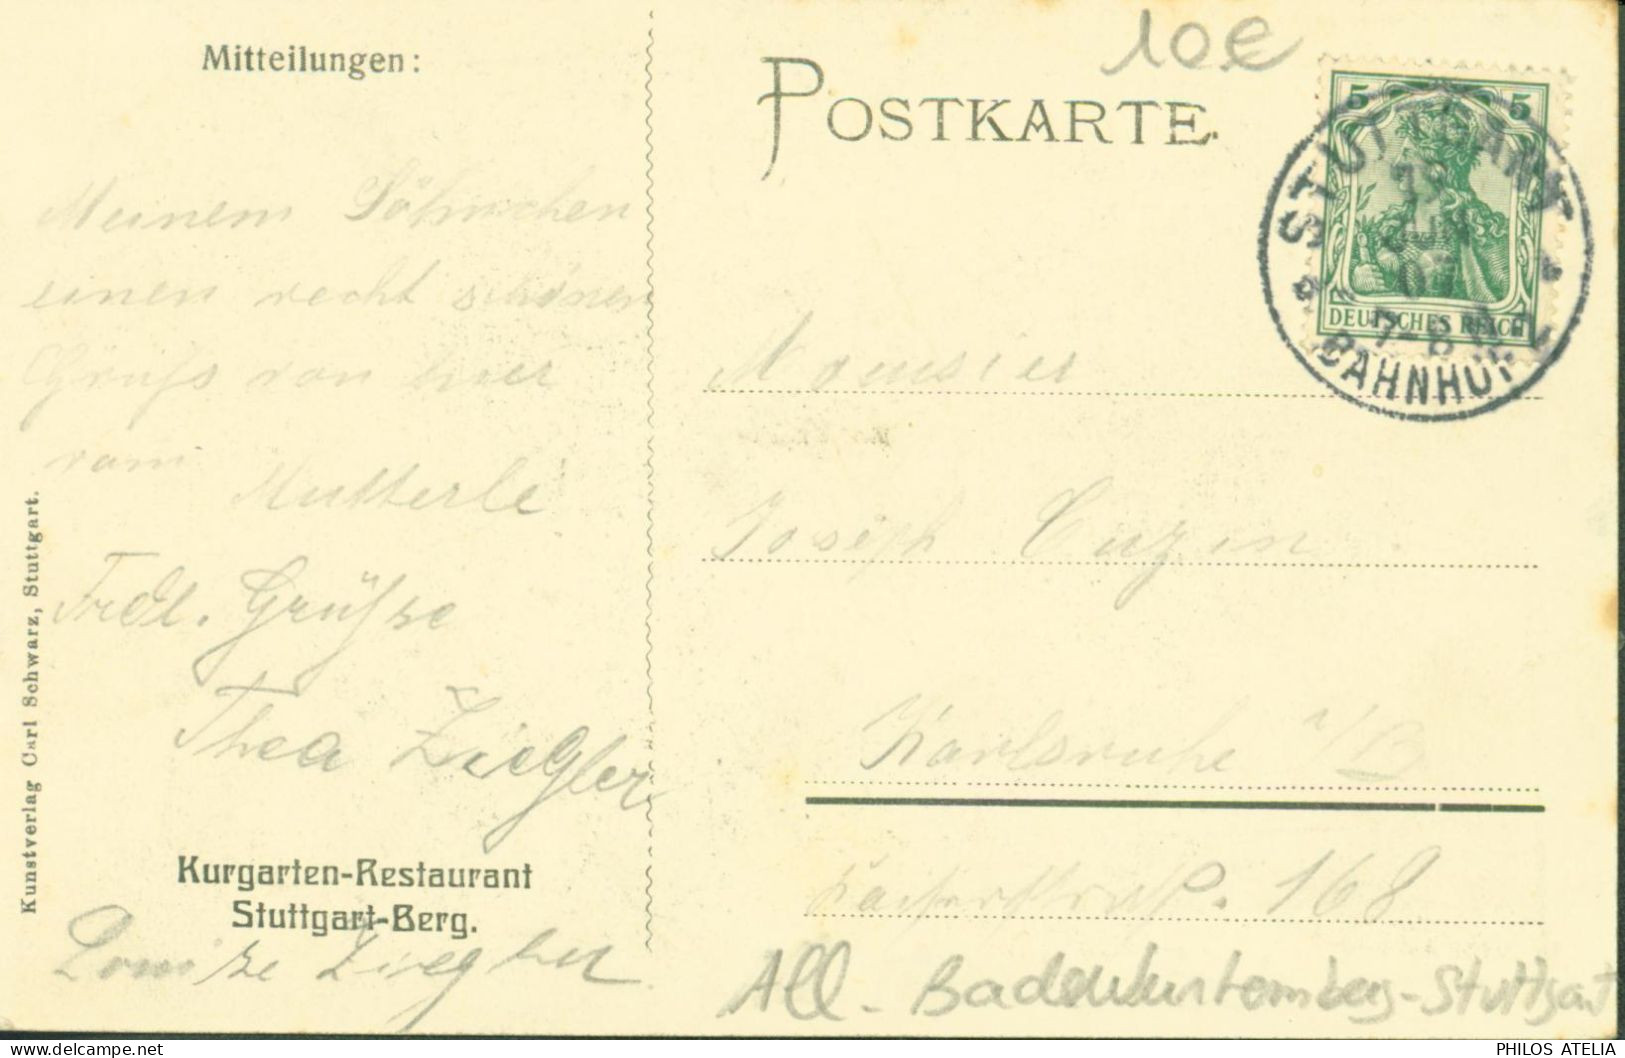 Mitteilungen:
Meinem Söhnchen
einen recht schönen
Gruss von hier
vom
Mutterle
Frdl. Grüsse
Thea Ziegler
Kurgarten-Restaurant
Stuttgart-Berg.
Louise Ziegler
Kunstverlag Carl Schwarz, Stuttgart.
10€
POSTKARTE.
5 5
DEUTSCHES REICH
STUTTGART
JUN
07
7-8
BAHNHOF
Monsieur
Joseph Cuzin
Karlsruhe i/B
Kaiserstrasse 168
All - Badenwurtemberg - Stuttgart
PHILOS ATELIA